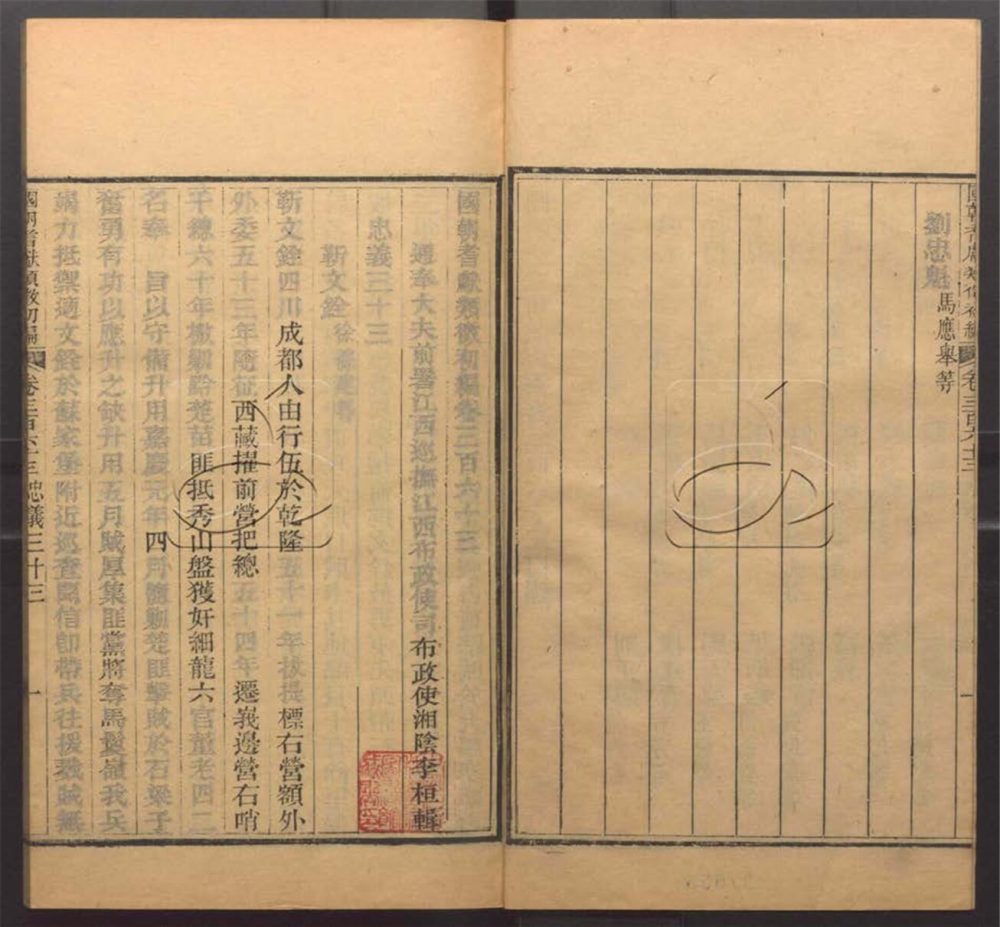 劉忠魁 馬應舉等
卷三百六十三
國朝耆獻類徵初編卷三百六十三
通奉大夫前署江西巡撫江西布政使司布政使湘陰李桓輯
忠義三十三
靳文銓
靳文銓四川成都人由行伍於乾隆五十一年拔提標右營額外
外委五十三年隨征西藏擢前營把總五十四年遷峩邊營右哨
千總六十年檄剿黔楚苗匪抵秀山盤獲奸細龍六官董老四二
名奉 旨以守備升用嘉慶元年四月隨剿楚匪擊賊於石梁子
奮勇有功以應升之缺升用五月賊厚集匪黨將奪馬鬃嶺我兵
竭力抵禦適文銓於蘇家堡附近巡查聞信卽帶兵往援戮賊無
國朝耆獻類徵初編 卷三百六十三 忠義三十三 一